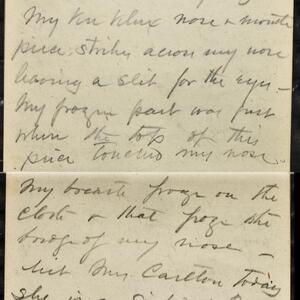 My Ku Klux nose & mouth
piece strikes across my nose
leaving a slit for the eyes —
My frozen part was just
where the top of this
piece touched my nose.
My breath froze on the
cloth & that froze the
bridge of my nose —
Mrs Carlton today
she is a